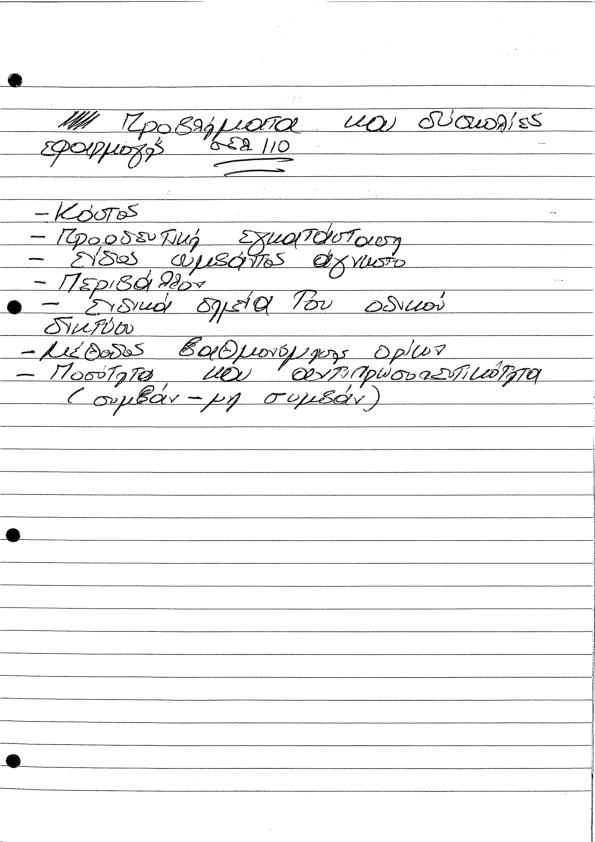 Προβλήματα και δύσκολίες
εφαρμογής σελ 110
- Κόστος
- Προοδευτική εγκατάσταση
- Είδος συμβάντος άγνωστο
- Περιβάλλον
- Ειδικά σημεία του οδικού
δικτύου
- Μέθοδος βαθμονόμησης ορίων
- Ποσότητα και αντιπρωσωπευτικότητα
(συμβάν - μη συμβάν)